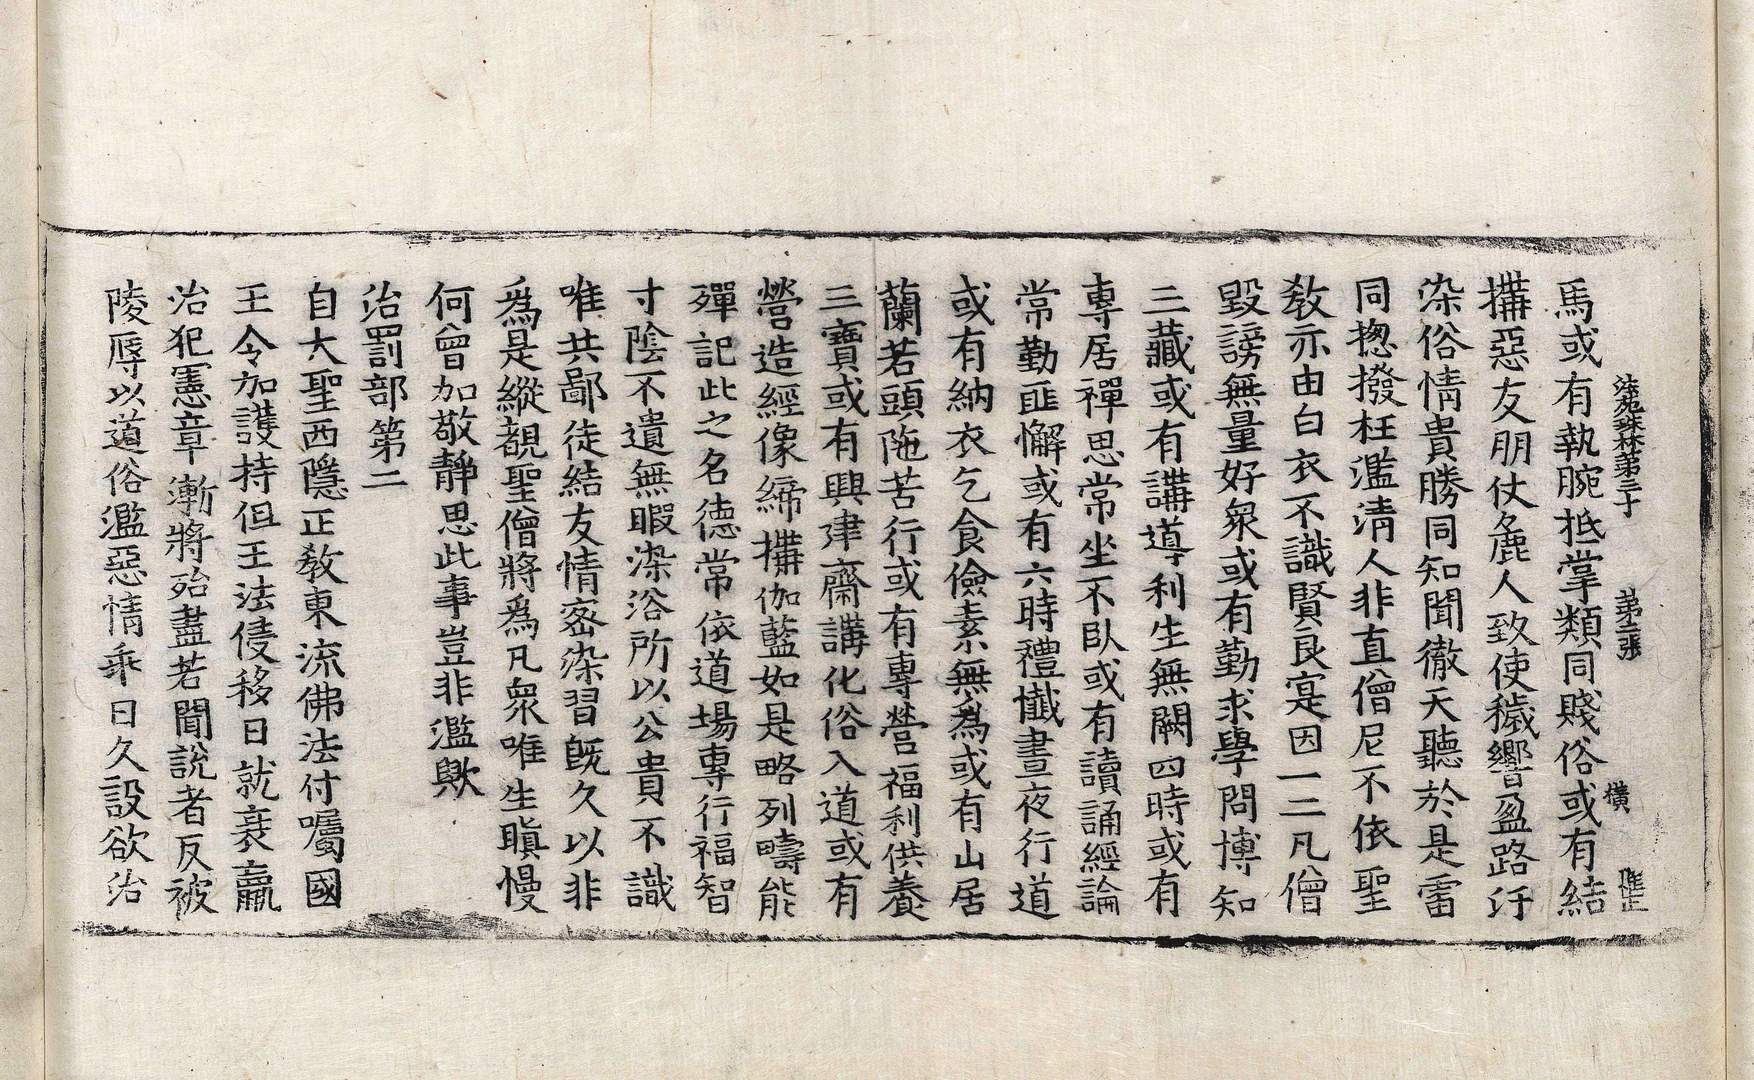 法苑珠林第三十 第三張 橫
馬或有執腕抵掌類同賤俗或有結
搆惡友朋仗麁人致使穢響盈路汙
染俗情貴勝同知聞徹天聽於是雷
同摠撥枉濫清人非直僧尼不依聖
教亦由白衣不識賢良寔因一二凡僧
毀謗無量好衆或有勤求學問博知
三藏或有講導利生無闕四時或有
專居禪思常坐不臥或有讀誦經論
常勤匪懈或有六時禮懺晝夜行道
或有納衣乞食儉素無爲或有山居
蘭若頭陁苦行或有專營福利供養
三寶或有興建齋講化俗入道或有
營造經像締搆伽藍如是略列疇能
殫記此之名德常依道場專行福智
寸陰不遺無暇染浴所以公貴不識
唯共鄙徒結友情密染習旣久以非
爲是縱覩聖僧將爲凡衆唯生瞋慢
何曾加敬靜思此事豈非濫歟
治罰部第二
自大聖西隱正敎東流佛法付囑國
王令加護持但王法侵移日就衰羸
治犯憲章漸將殆盡若聞說者反被
陵辱以道俗濫惡情乖日久設欲治